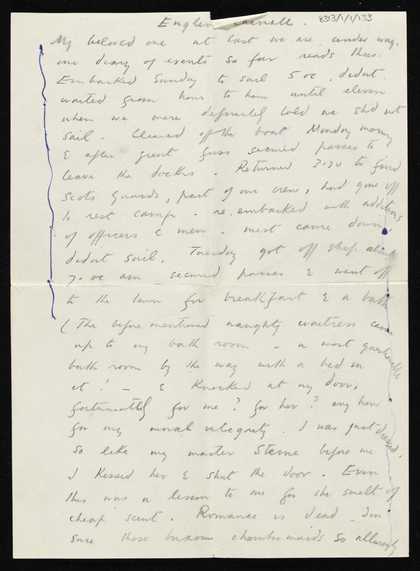 English Channel. 8313/1/1/133
My beloved one at last we are under way.
our diary of events so far reads thus:
Embarked Sunday to sail 5 oc. didnt
waited from hour to hour until eleven
when we were definitely told we shd not
sail. Cleared off the boat Monday morning
& after great fuss secured passes to
leave the docks. Returned 2.30 to find
Scots Guards, part of our crew, had gone off
to rest camp. re. embarked with additions
of officers & men. mist came down
didnt sail. Tuesday got off ship about
7. oc am secured passes & went off
to the town for breakfast & a bath
(The before mentioned naughty waitress came
up to my bath room - a most
bath room by the way with a bed in
it! - & knocked at my door,
fortunately for me? for her? any how
for my moral integrity. I was just dressed.
So like my master Sterne before me
I kissed her & shut the door. Even
this was a lesson to me for she smelt of
cheap scent. Romance is dead. Im
sure those buxom chambermaids so alluringly